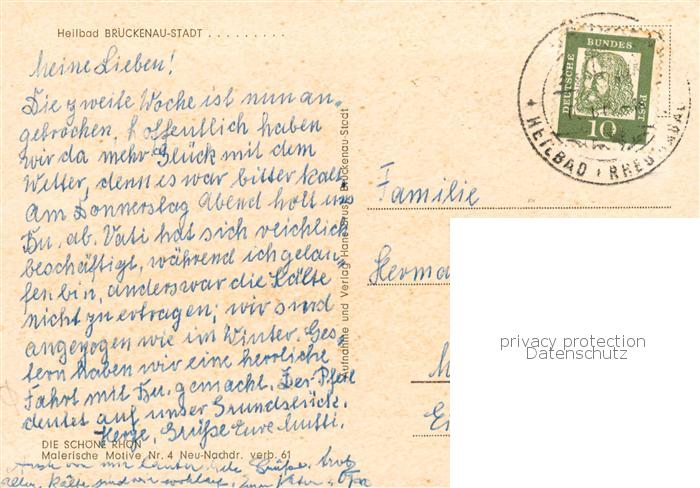 Heilbad BRÜCKENAU-STADT . . . . . . . . .
Meine Lieben!
Die zweite Woche ist nun an-
gebrochen, hoffentlich haben
wir da mehr Glück mit dem
Wetter, denn es war bitter kalt.
Am Donnerstag Abend holt uns
Hu. ab. Vati hat sich reichlich
beschäftigt, während ich gelau-
fen bin, anders war die Kälte
nicht zu ertragen; wir sind
angezogen wie im Winter. Ges-
tern haben wir eine herrliche
Fahrt mit Hu. gemacht. Der Pfeil
deutet auf unser Grundstück.
Herzl. Grüße Eure Mutti.
DIE SCHÖNE RHÖN
Malerische Motive Nr. 4 Neu-Nachdr. verb. 61
Auch von mir Grüße, trotz
aller Kälte sind wir Opa
Aufnahme und Verlag Hans Brust, Brückenau-Stadt
DEUTSCHE BUNDES POST
10
HEILBAD BRÜCKENAU
Familie
Herma
M
Ei
privacy protection
Datenschutz